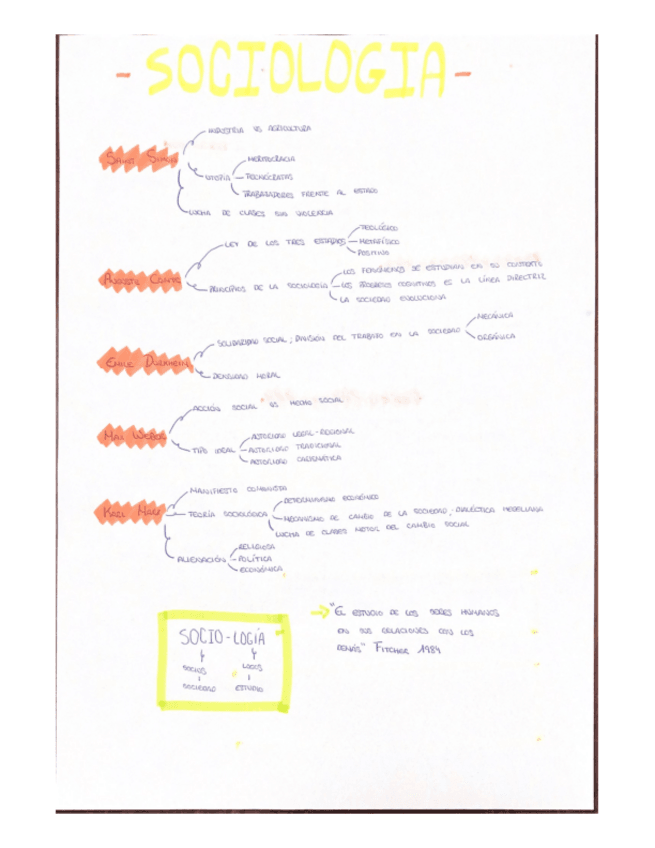 - SOCIOLOGIA -
SAINT SIMON
INDUSTRIA VS AGRICULTURA
UTOPÍA
MERITOCRACIA
TECNÓCRATAS
TRABAJADORES FRENTE AL ESTADO
LUCHA DE CLASES SIN VIOLENCIA
AUGUSTE COMTE
LEY DE LOS TRES ESTADIOS
TEOLÓGICO
METAFÍSICO
POSITIVO
PRINCIPIOS DE LA SOCIOLOGÍA
LOS FENÓMENOS SE ESTUDIAN EN SU CONTEXTO
LOS PROGRESOS COGNITIVOS ES LA LÍNEA DIRECTRIZ
LA SOCIEDAD EVOLUCIONA
EMILE DURKHEIM
SOLIDARIDAD SOCIAL; DIVISIÓN DEL TRABAJO EN LA SOCIEDAD
MECÁNICA
ORGÁNICA
DENSIDAD MORAL
MAX WEBER
ACCIÓN SOCIAL VS HECHO SOCIAL
TIPO IDEAL
AUTORIDAD LEGAL-RACIONAL
AUTORIDAD TRADICIONAL
AUTORIDAD CARISMÁTICA
KARL MARX
MANIFIESTO COMUNISTA
TEORÍA SOCIOLÓGICA
DETERMINISMO ECONÓMICO
MECANISMO DE CAMBIO DE LA SOCIEDAD; DIALÉCTICA HEGELIANA
LUCHA DE CLASES DEL CAMBIO SOCIAL
ALIENACIÓN
RELIGIOSA
POLÍTICA
ECONÓMICA
SOCIO-LOGÍA
SOCIOS LOGOS
SOCIEDAD ESTUDIO
"EL ESTUDIO DE LOS SERES HUMANOS
EN SUS RELACIONES CON LOS
DEMÁS" FITCHER 1984